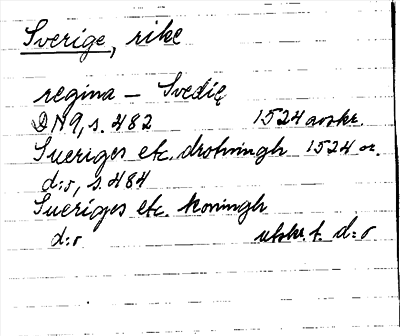 Sverige, rike
regina – Svedię
DN 9, s. 482 1524 avskr.
Sueriges etc. drotningh 1524 or.
d:o, s. 484
Sueriges etc. koningh
d:o utskr. t. d:o